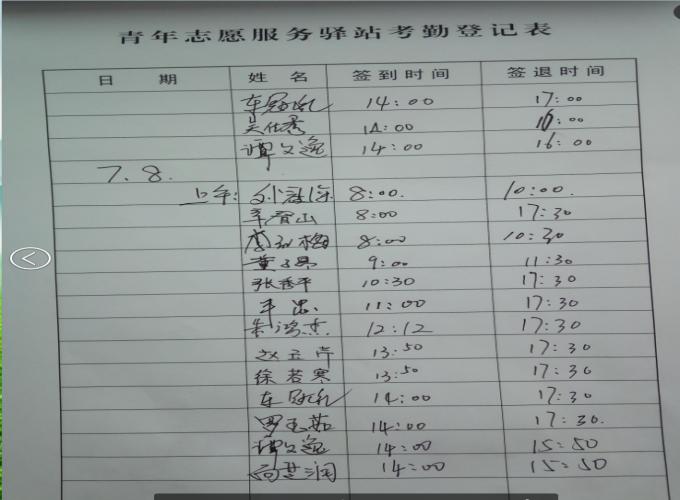 青年志愿服务驿站考勤登记表
日 期 姓 名 签到时间 签退时间
14:00 17:00
14:00 16:00
谭文逸 14:00 16:00
7.8.
上午: 8:00. 10:00.
8:00 17:30
8:00 10:30
黄 9:00 11:30
张秀平 10:30 17:30
11:00 17:30
朱鸿杰. 12:12 17:30
赵云芹 13:50 17:30
徐若寒 13:50 17:30
14:00 17:30
罗玉茹 14:00 17:30.
谭文逸 14:00 15:50
向芝润 14:00 15:50